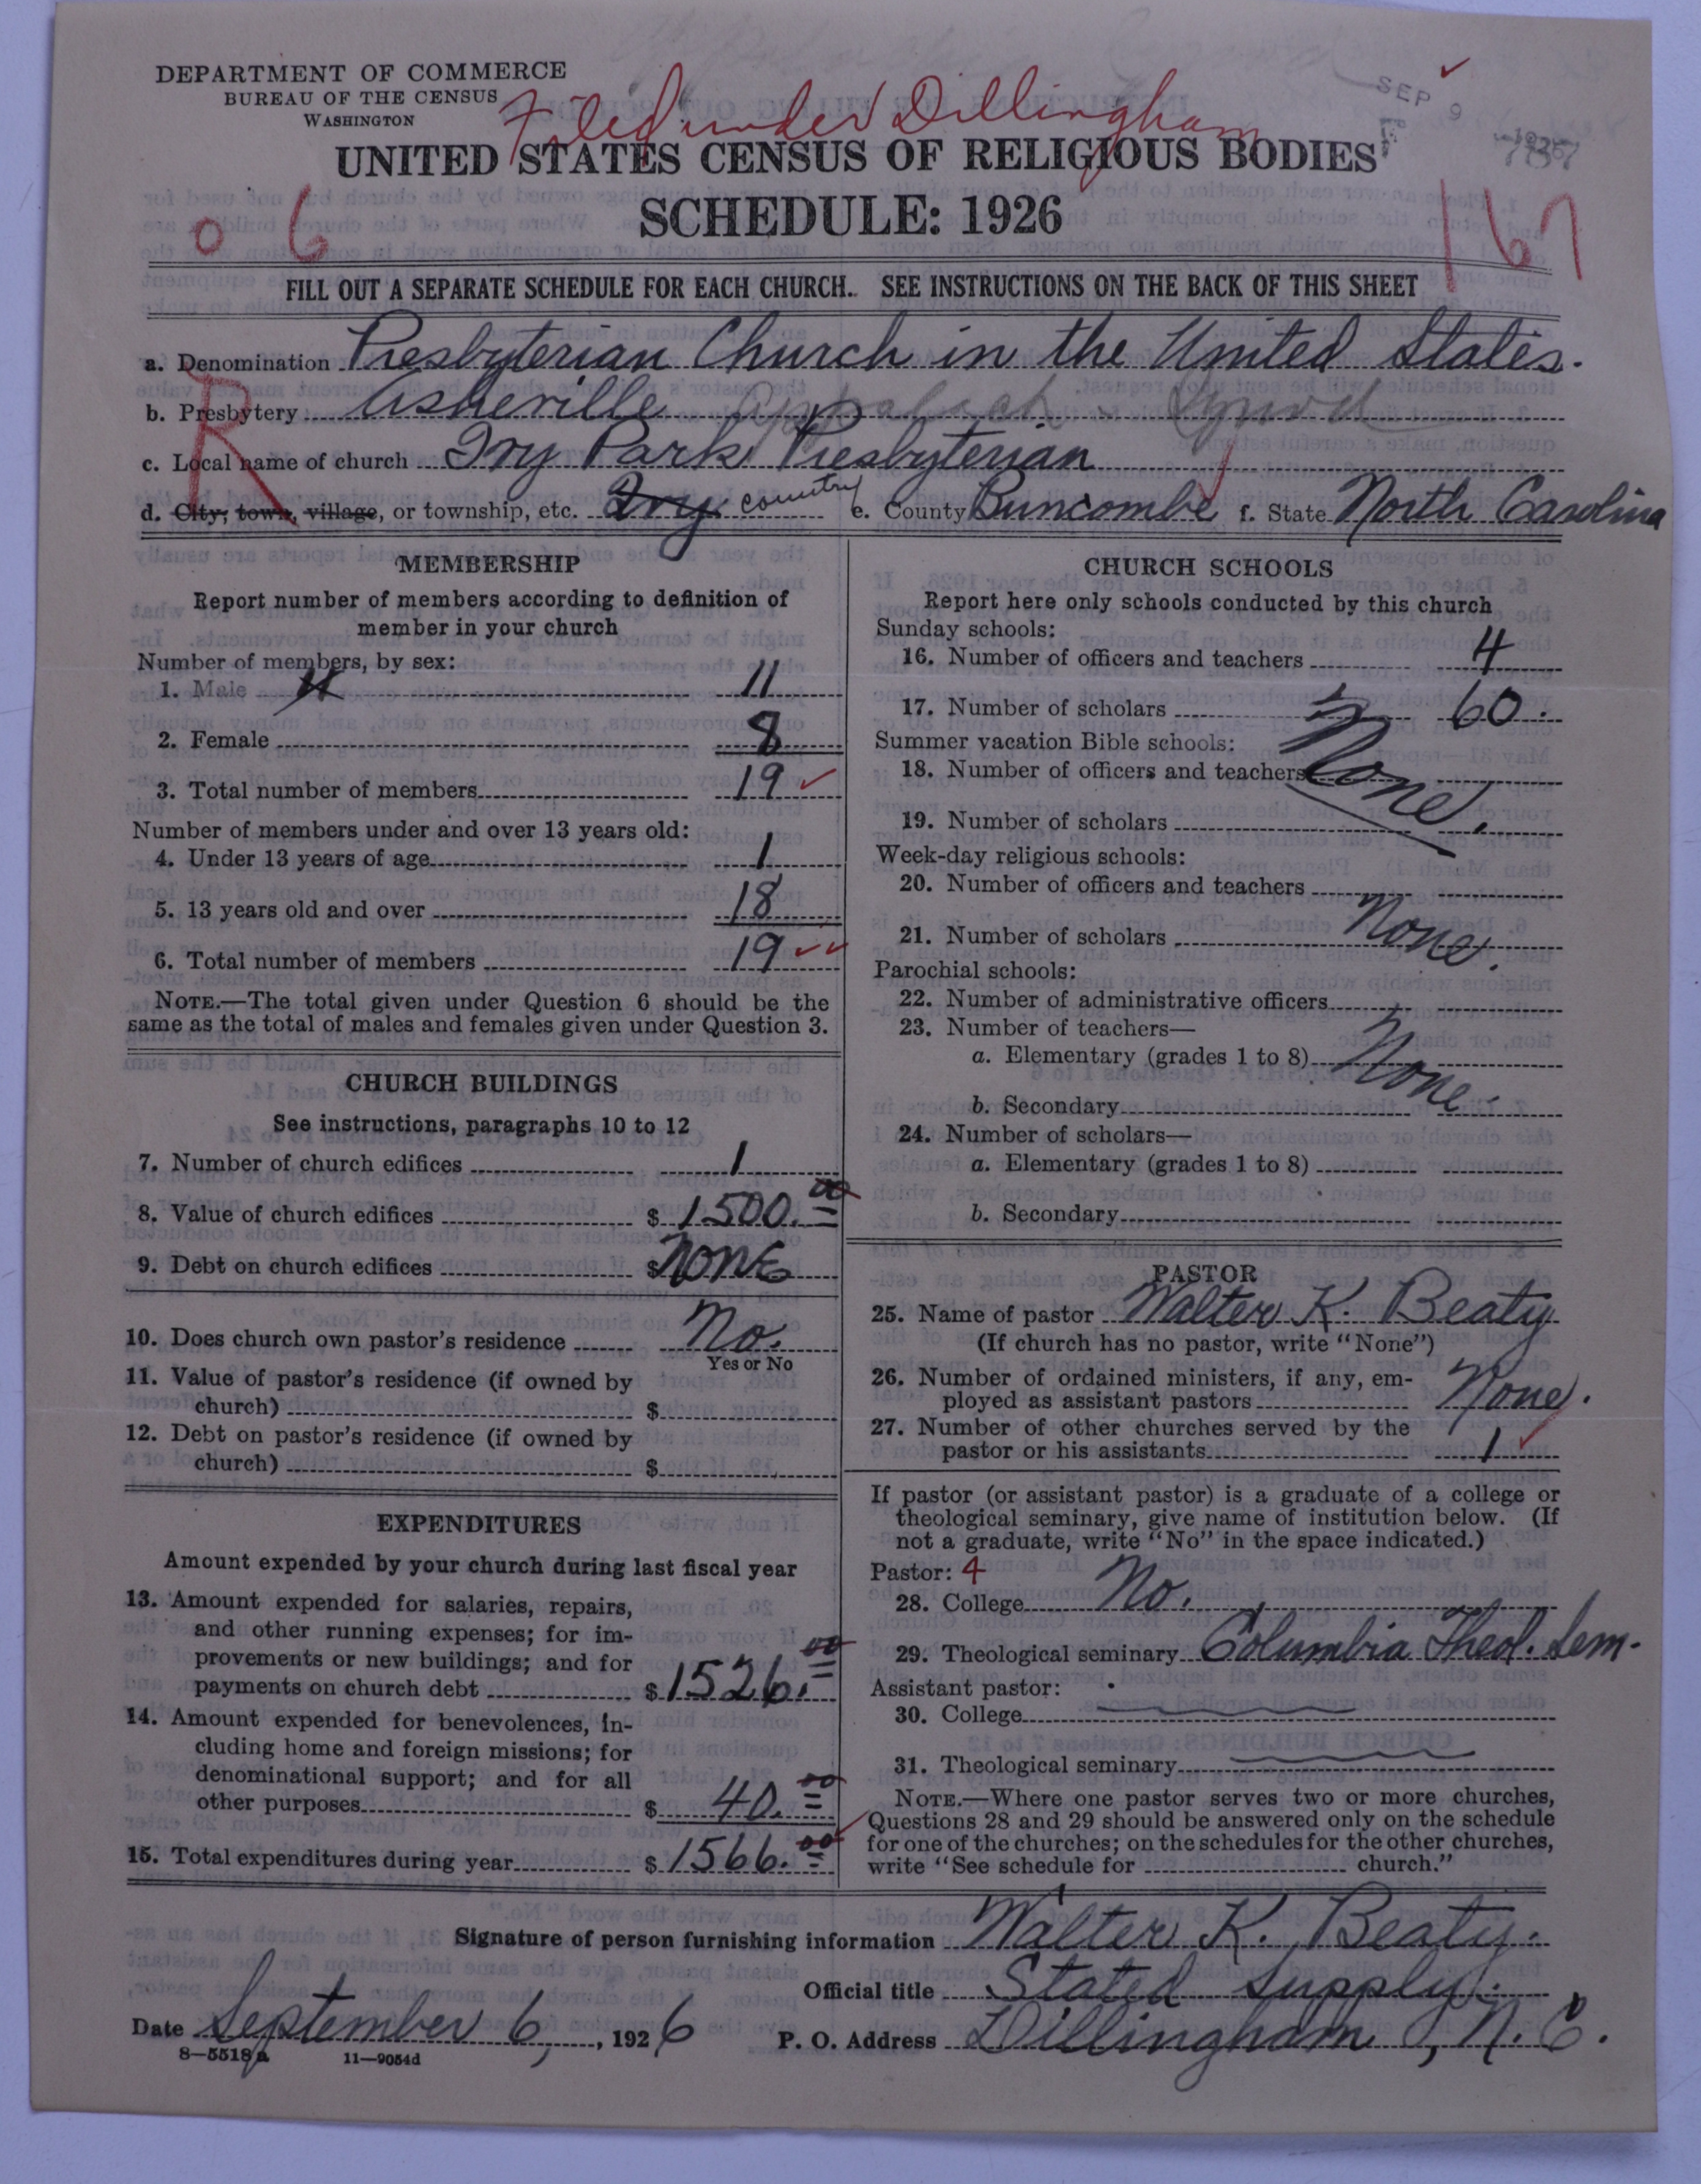 DEPARTMENT OF COMMERCE
BUREAU OF THE CENSUS
WASHINGTON
Filed under Dillingham
SEP 9
UNITED STATES CENSUS OF RELIGIOUS BODIES
SCHEDULE: 1926
0 6 167
FILL OUT A SEPARATE SCHEDULE FOR EACH CHURCH. SEE INSTRUCTIONS ON THE BACK OF THIS SHEET
a. Denomination Presbyterian Church in the United States.
b. Presbytery Asheville Appalach - Synod
R
c. Local name of church Ivy Park Presbyterian
d. City, town, village, or township, etc. Ivy country e. County Buncombe f. State North Carolina
MEMBERSHIP
Report number of members according to definition of
member in your church
Number of members, by sex:
1. Male 11 11
2. Female 8
3. Total number of members 19
Number of members under and over 13 years old:
4. Under 13 years of age 1
5. 13 years old and over 18
6. Total number of members 19
NOTE.—The total given under Question 6 should be the
same as the total of males and females given under Question 3.
CHURCH BUILDINGS
See instructions, paragraphs 10 to 12
7. Number of church edifices 1
8. Value of church edifices $ 1500.00
9. Debt on church edifices $ None
10. Does church own pastor's residence No.
Yes or No
11. Value of pastor's residence (if owned by
church) $
12. Debt on pastor's residence (if owned by
church) $
EXPENDITURES
Amount expended by your church during last fiscal year
13. Amount expended for salaries, repairs,
and other running expenses; for im-
provements or new buildings; and for
payments on church debt $ 1526.00
14. Amount expended for benevolences, in-
cluding home and foreign missions; for
denominational support; and for all
other purposes $ 40.00
15. Total expenditures during year $ 1566.00
CHURCH SCHOOLS
Report here only schools conducted by this church
Sunday schools:
16. Number of officers and teachers 4
17. Number of scholars 60.
Summer vacation Bible schools:
18. Number of officers and teachers None.
19. Number of scholars
Week-day religious schools:
20. Number of officers and teachers
21. Number of scholars None.
Parochial schools:
22. Number of administrative officers
23. Number of teachers—
a. Elementary (grades 1 to 8) None.
b. Secondary
24. Number of scholars—
a. Elementary (grades 1 to 8)
b. Secondary
PASTOR
25. Name of pastor Walter K. Beaty
(If church has no pastor, write "None")
26. Number of ordained ministers, if any, em-
ployed as assistant pastors None.
27. Number of other churches served by the
pastor or his assistants 1
If pastor (or assistant pastor) is a graduate of a college or
theological seminary, give name of institution below. (If
not a graduate, write "No" in the space indicated.)
Pastor: 4
28. College No.
29. Theological seminary Columbia Theol. Sem.
Assistant pastor:
30. College
31. Theological seminary
NOTE.—Where one pastor serves two or more churches,
Questions 28 and 29 should be answered only on the schedule
for one of the churches; on the schedules for the other churches,
write "See schedule for church."
Signature of person furnishing information Walter K. Beaty.
Official title Stated Supply.
Date September 6, 1926 P. O. Address Dillingham, N. C.
8—5518a 11—9054d